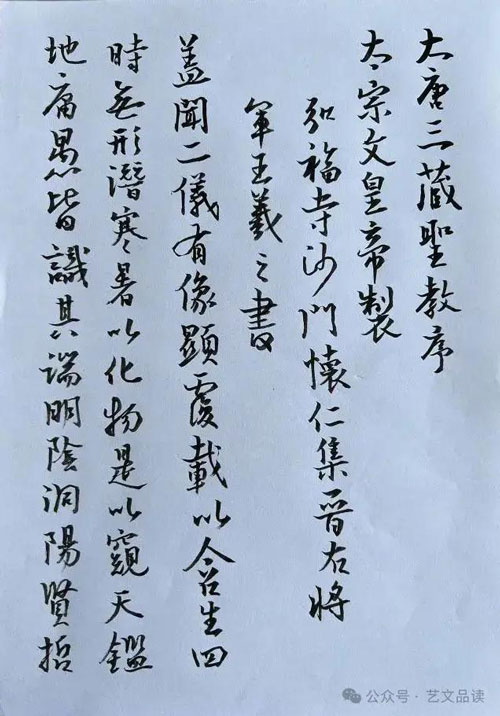 大唐三藏聖教序
太宗文皇帝製
弘福寺沙門懷仁集晉右將
軍王羲之書
蓋聞二儀有像顯覆載以含生四
時無形潛寒暑以化物是以窺天鑑
地庸愚皆識其端明陰洞陽賢哲
公众号·艺文品读